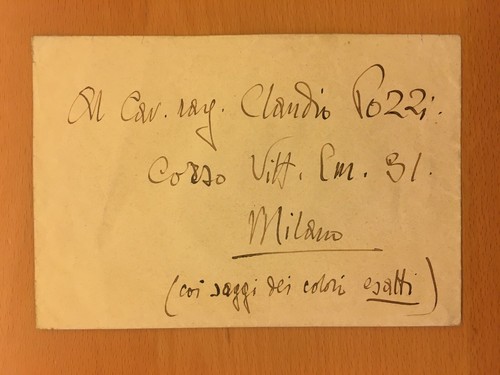 Al Cav. rag. Claudio Pozzi.
Corso Vitt. Em. 31.
Milano
(coi saggi dei colori esatti)